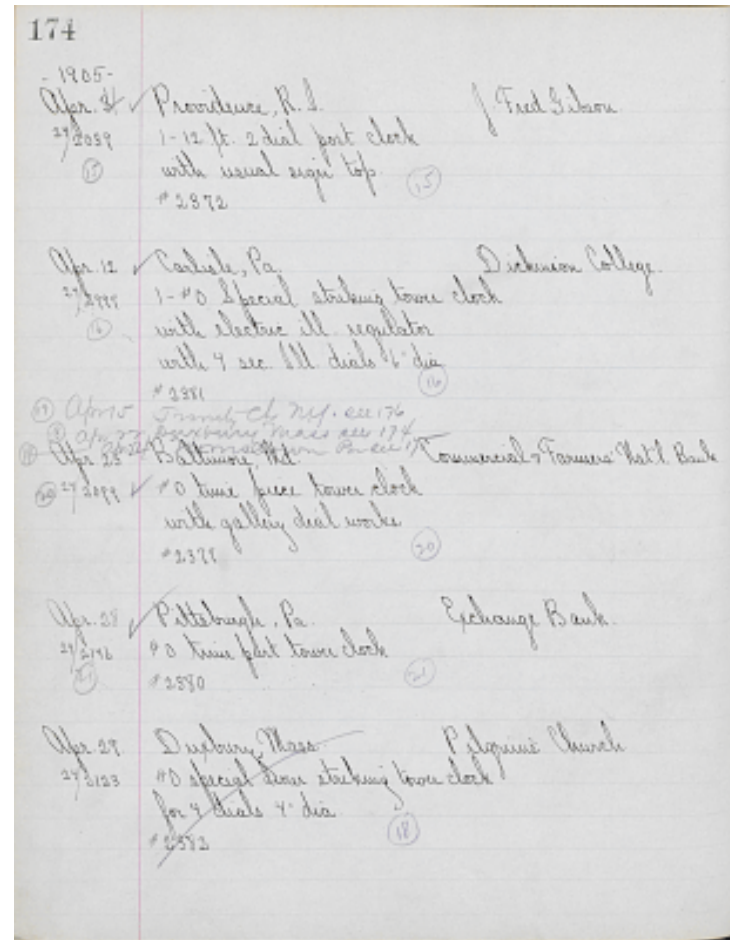 174
- 1905 -
Apr. ✓ Providence, R.I. J. Fred Gibson.
27/2039 1 - 12 ft. 2 dial post clock
(15) with usual sign top. (15)
#2372
Apr. 12 ✓ Carlisle, Pa. Dickinson College.
1 - #0 Special striking tower clock
(16) with electric ill. regulator
with 4 sec. Ill. dials 6' dia
#2381 (16)
Apr 15 see 176
Apr 22 Duxbury Mass see 174
Apr. 25 Baltimore, Md. Commercial & Farmers Nat'l. Bank
(20) ✓ #0 time piece tower clock
with gallery dial works
(20)
Apr. 28 ✓ Pittsburgh, Pa. Exchange Bank.
#0 time part tower clock
(21) #2380 (21)
Apr. 29 Duxbury, Mass. Pilgrim Church
27/2123 #0 special striking tower clock
for 4 dials 4' dia.
#2383 (18)